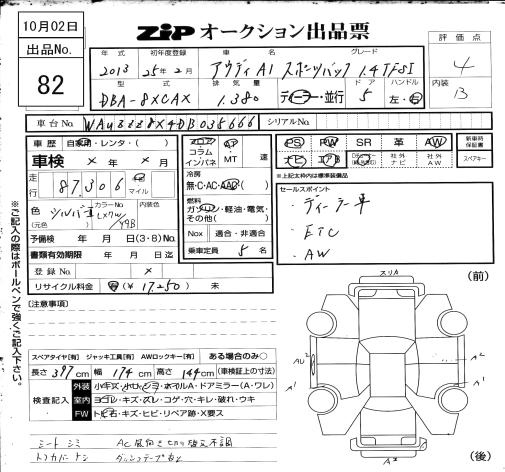 10月02日
出品No.
82
ZIP オークション出品票
評価点
4
内装
B
年式 初年度登録 車名 グレード
2013 25年2月 アウディA1 スポーツバック 1.4TFSI
型式 排気量 ドア ハンドル
DBA-8XCAX 1.380 ディーラー・並行 5 左・右
車台No. WAUZZZ8X4DB035666 シリアルNo.
車歴 自家用・レンタ・( )
車検 × 年 × 月
走行 87,306 マイル
色 シルバー カラーNo. 内装色
(元色) LX7W/Y9B
予備検 年 月 日(3・8)No.
書類有効期限 年 月 日迄
登録No. ×
リサイクル料金 有 (¥ 17,250 ) 未
フロア コラム インパネ
AT MT 速
冷房
無・C・AC・AAC( )
燃料
ガソリン・軽油・電気・その他( )
Nox 適合・非適合
乗車定員 5 名
PS PW SR 革 AW
ナビ エアB 社外ナビ 社外AW
新車時保証書
スペアキー
※上記太枠内は標準装備品
セールスポイント
・ディーラー車
・ETC
・AW
※ご記入の際はボールペンで強くご記入下さい。
[注意事項]
スペアタイヤ[有] ジャッキ工具[有] AWロックキー[有] ある場合のみ○
長さ 397 cm 幅 174 cm 高さ 144 cm (車検証上の寸法)
検査記入
外装 小キズ・小ヘコ・ジラ・ホイルA・ドアミラー(A・ワレ)
室内 ヨゴレ・キズ・スレ・コゲ・穴・キレ・破れ・ウキ
FW トビ石・キズ・ヒビ・リペア跡・X要ス
シートシミ AC風向き切り替え不調
トノカバーナシ
(前)
スリA
AU2
A2
A1
A1
A2
(後)